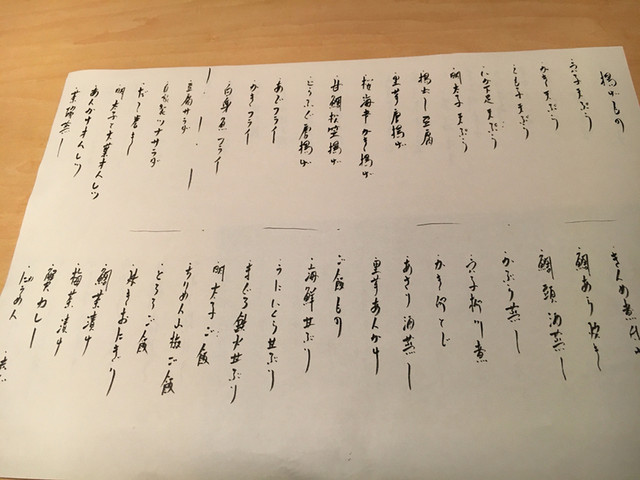 揚げもの
穴子天ぷら
かき天ぷら
とも子天ぷら
たか下足天ぷら
明太子天ぷら
揚げ出し豆腐
里芋唐揚げ
桜海老かき揚げ
甘鯛松笠揚げ
とらふぐ唐揚げ
あじフライ
かきフライ
白身魚フライ
豆腐サラダ
ツナサラダ
だし巻き
明太子大葉オムレツ
あんかけオムレツ
茶碗蒸し
きんめ煮付け
鯛あら炊き
鯛頭酒蒸し
かぶら蒸し
穴子柳川煮
かき卵とじ
あさり酒蒸し
里芋あんかけ
ご飯もの
海鮮丼ぶり
うにいくら丼ぶり
まぐろ鉄火丼ぶり
明太子ご飯
ちりめん山椒ご飯
とろろご飯
焼きおにぎり
鯛茶漬け
梅茶漬け
カレー
にうめん